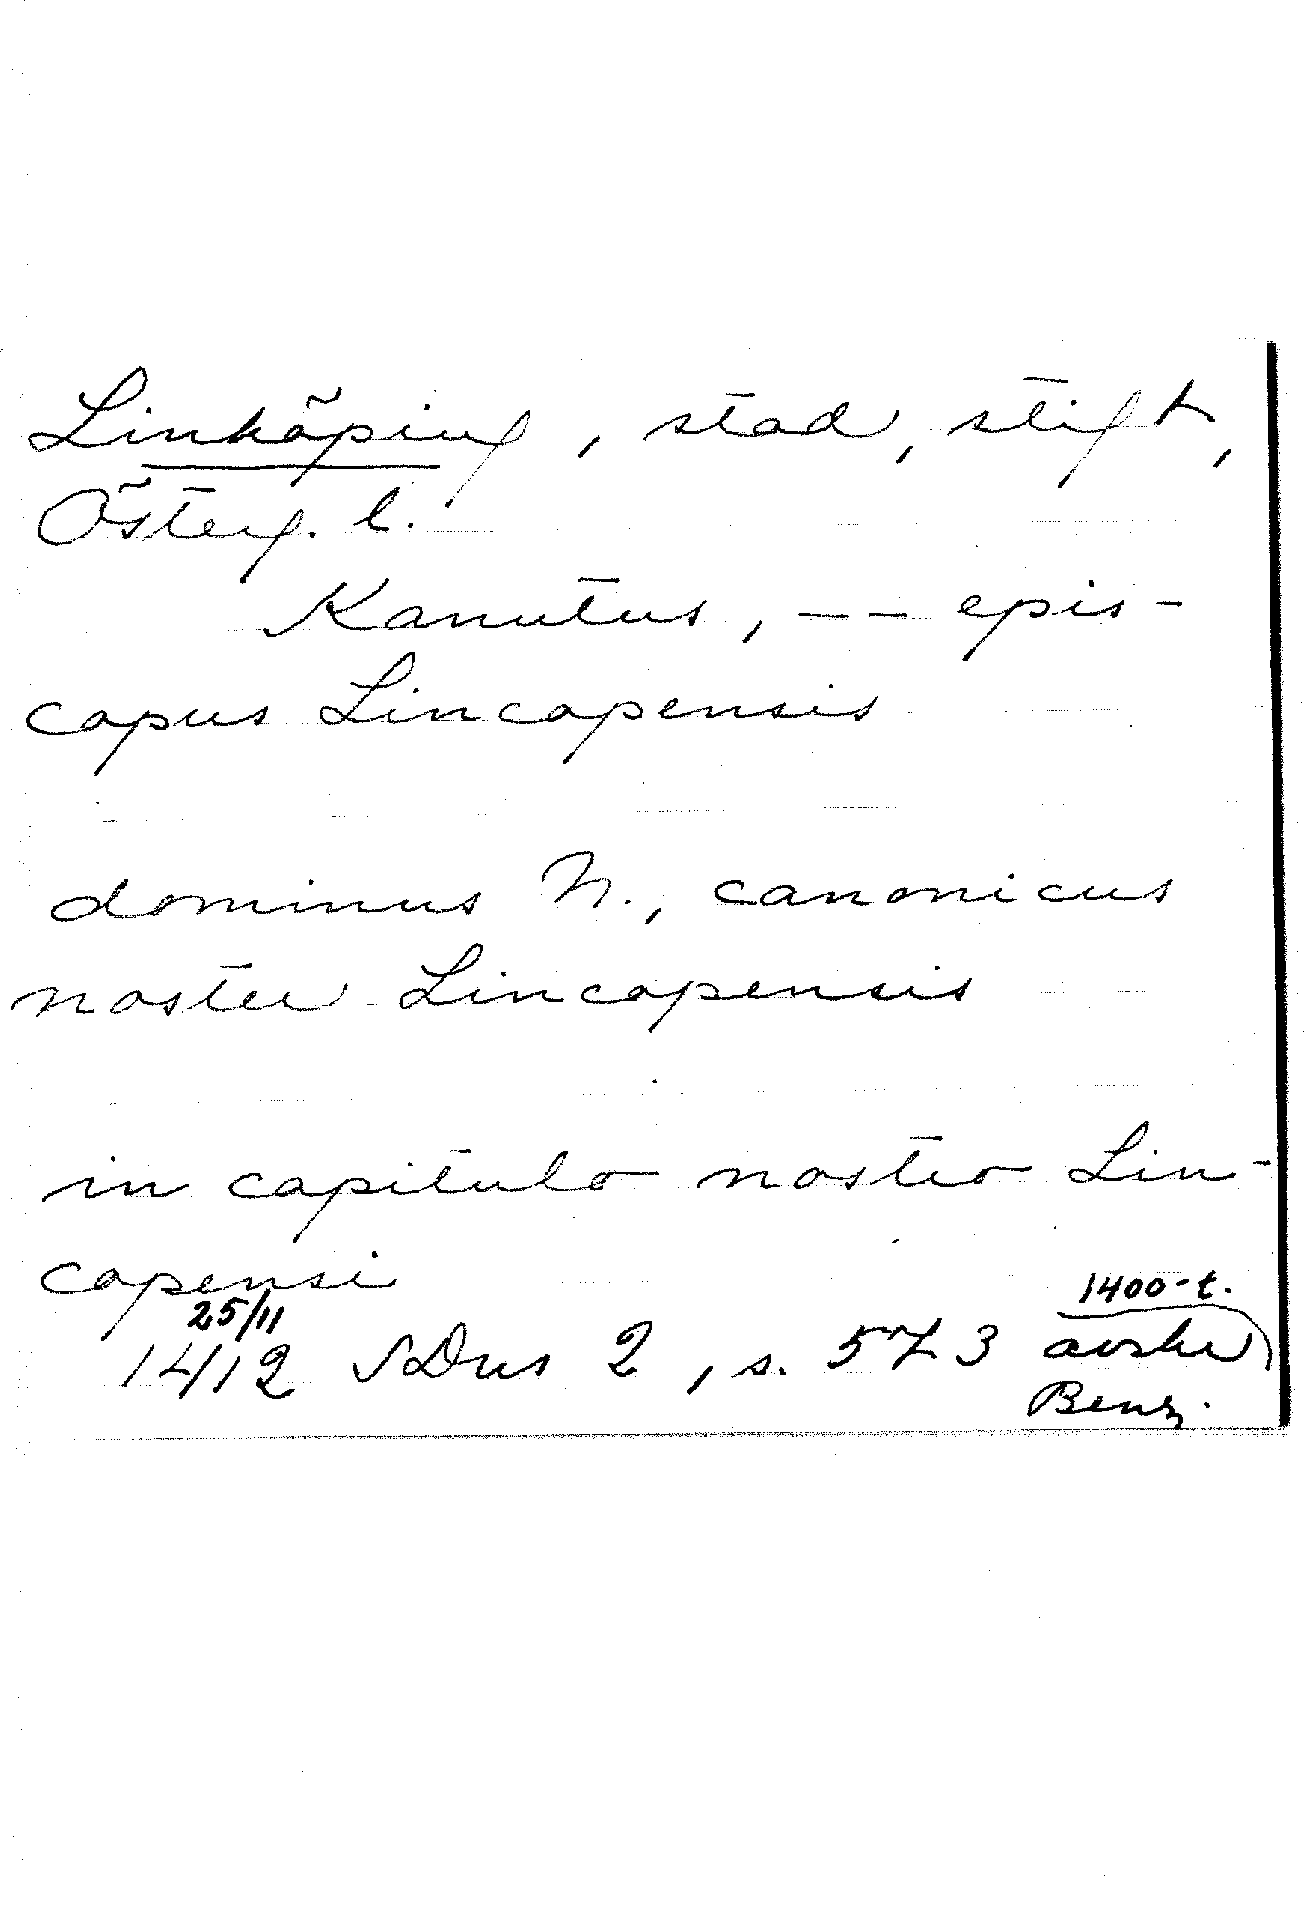 Linköping, stad, stift,
Österg. l.
Kanutus, -- epis-
copus Lincopensis
dominus N., canonicus
noster Lincopensis
in capitulo nostro Lin-
copensi
25/11 1400-t.
1412 SDns 2, s. 573 avskr
Benz.